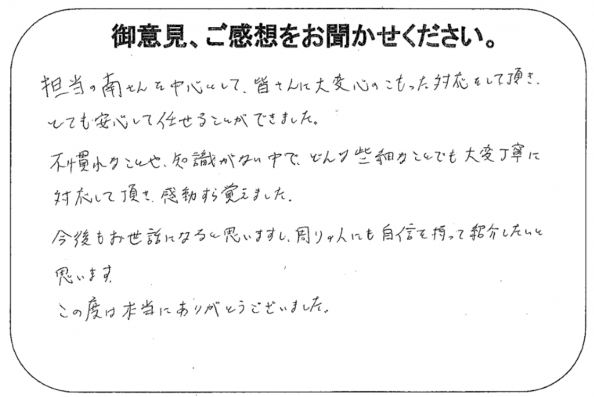 御意見、ご感想をお聞かせください。
担当の南さんを中心にして、皆さんに大変心のこもった対応をして頂き、
とても安心して任せることができました。
不慣れなことや、知識がない中で、どんな些細なことでも大変丁寧に
対応して頂き、感動すら覚えました。
今後もお世話になると思いますし、周りの人にも自信を持って紹介したいと
思います。
この度は本当にありがとうございました。